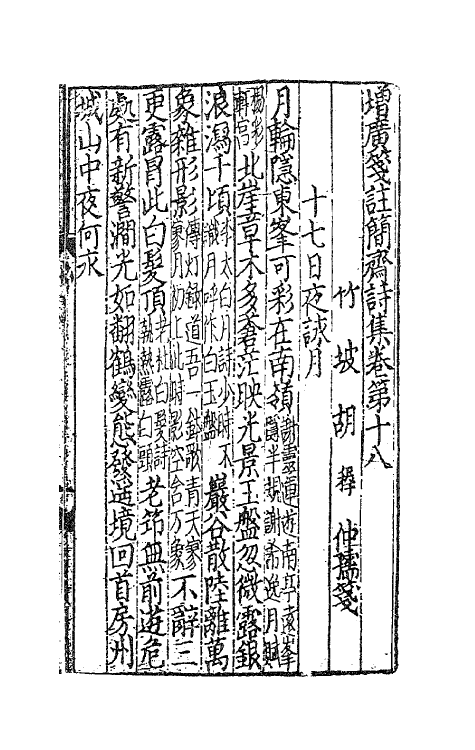 增廣箋註簡齋詩集卷第十八
竹坡胡穉仲孺箋
十七日夜詠月
月輪隱東峯可彩在南嶺謝靈運遊南亭遠峯隱半規謝希逸月賦
揚彩軒宮北崖草木多蒼茫映光景玉盤忽微露銀
浪瀉千頃李太白月詩少時不識月呼作白玉盤巖谷散陸離萬
象雜形影傳灯録道吾一鉢歌青天寥寥月初上此時影空含万象不辭三
更露冒此白髮頂老杜白髮詩執熱露白頭老筇無前遊危
處有新警澗光如翻鶴變態發遥境回首房州
城山中夜何永